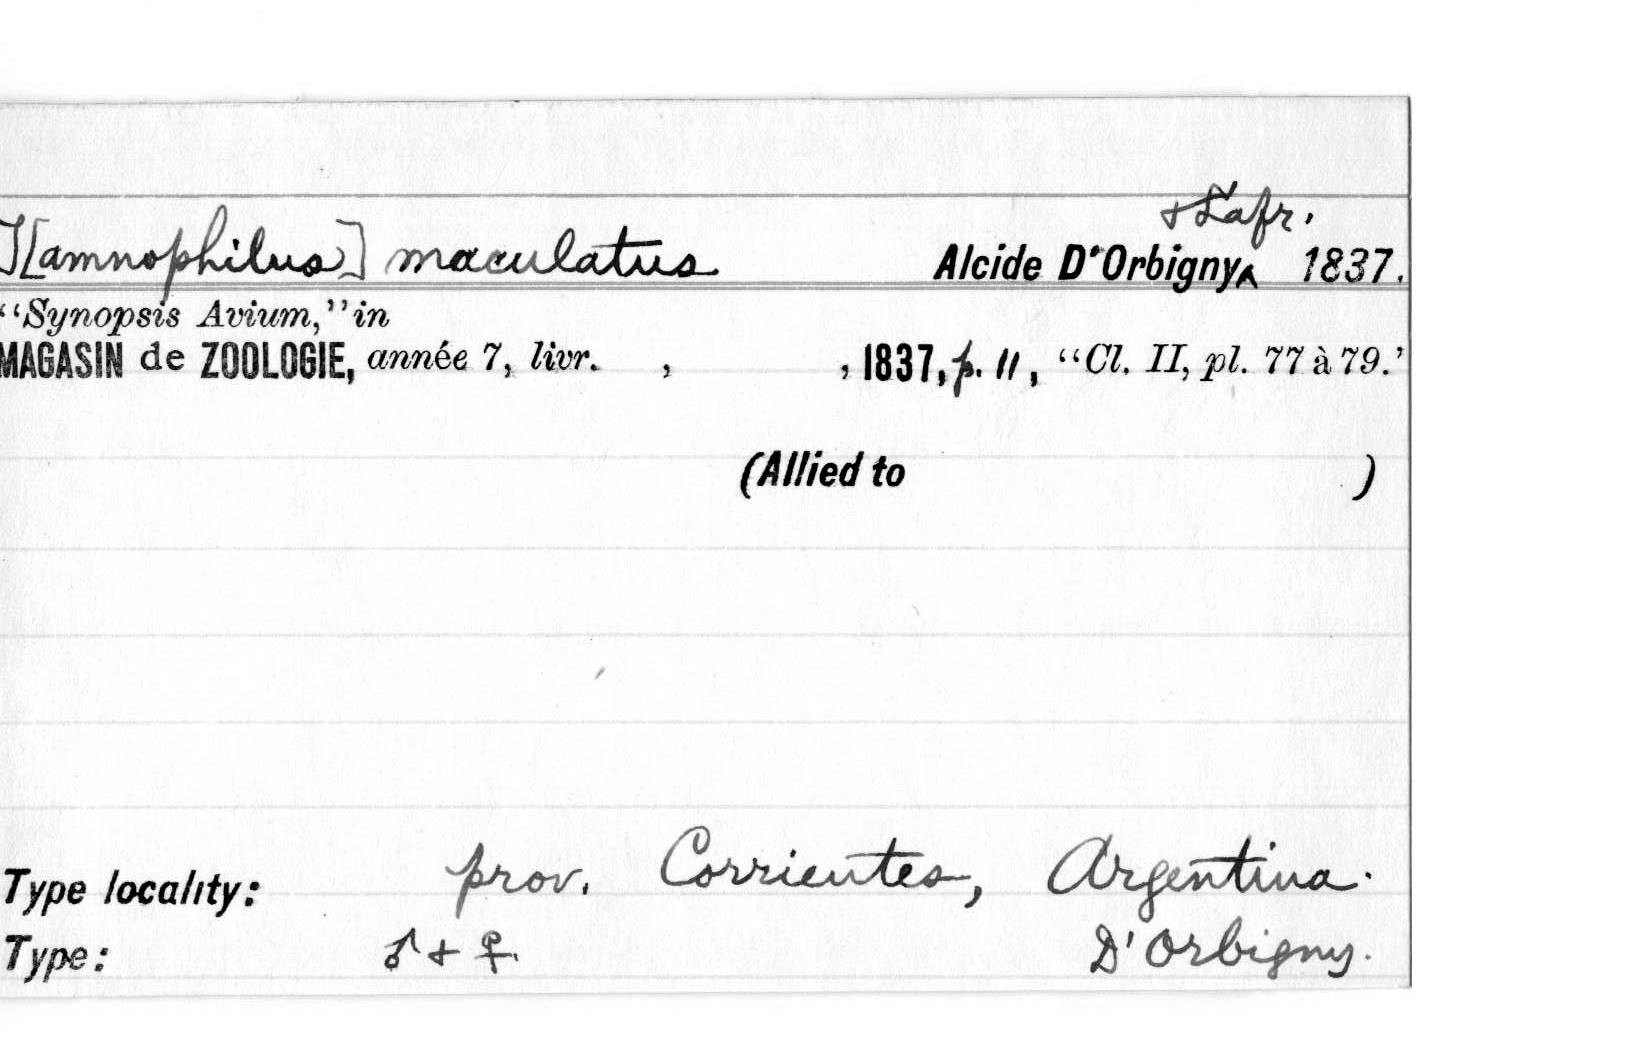 & Lafr.
T[amnophilus] maculatus Alcide D'Orbigny^ 1837.
"Synopsis Avium," in
MAGASIN de ZOOLOGIE, année 7, livr. , , 1837, p. 11, "Cl. II, pl. 77 à 79.'
(Allied to )
Type locality: prov. Corrientes, Argentina.
Type: ♂ & ♀. D'Orbigny.